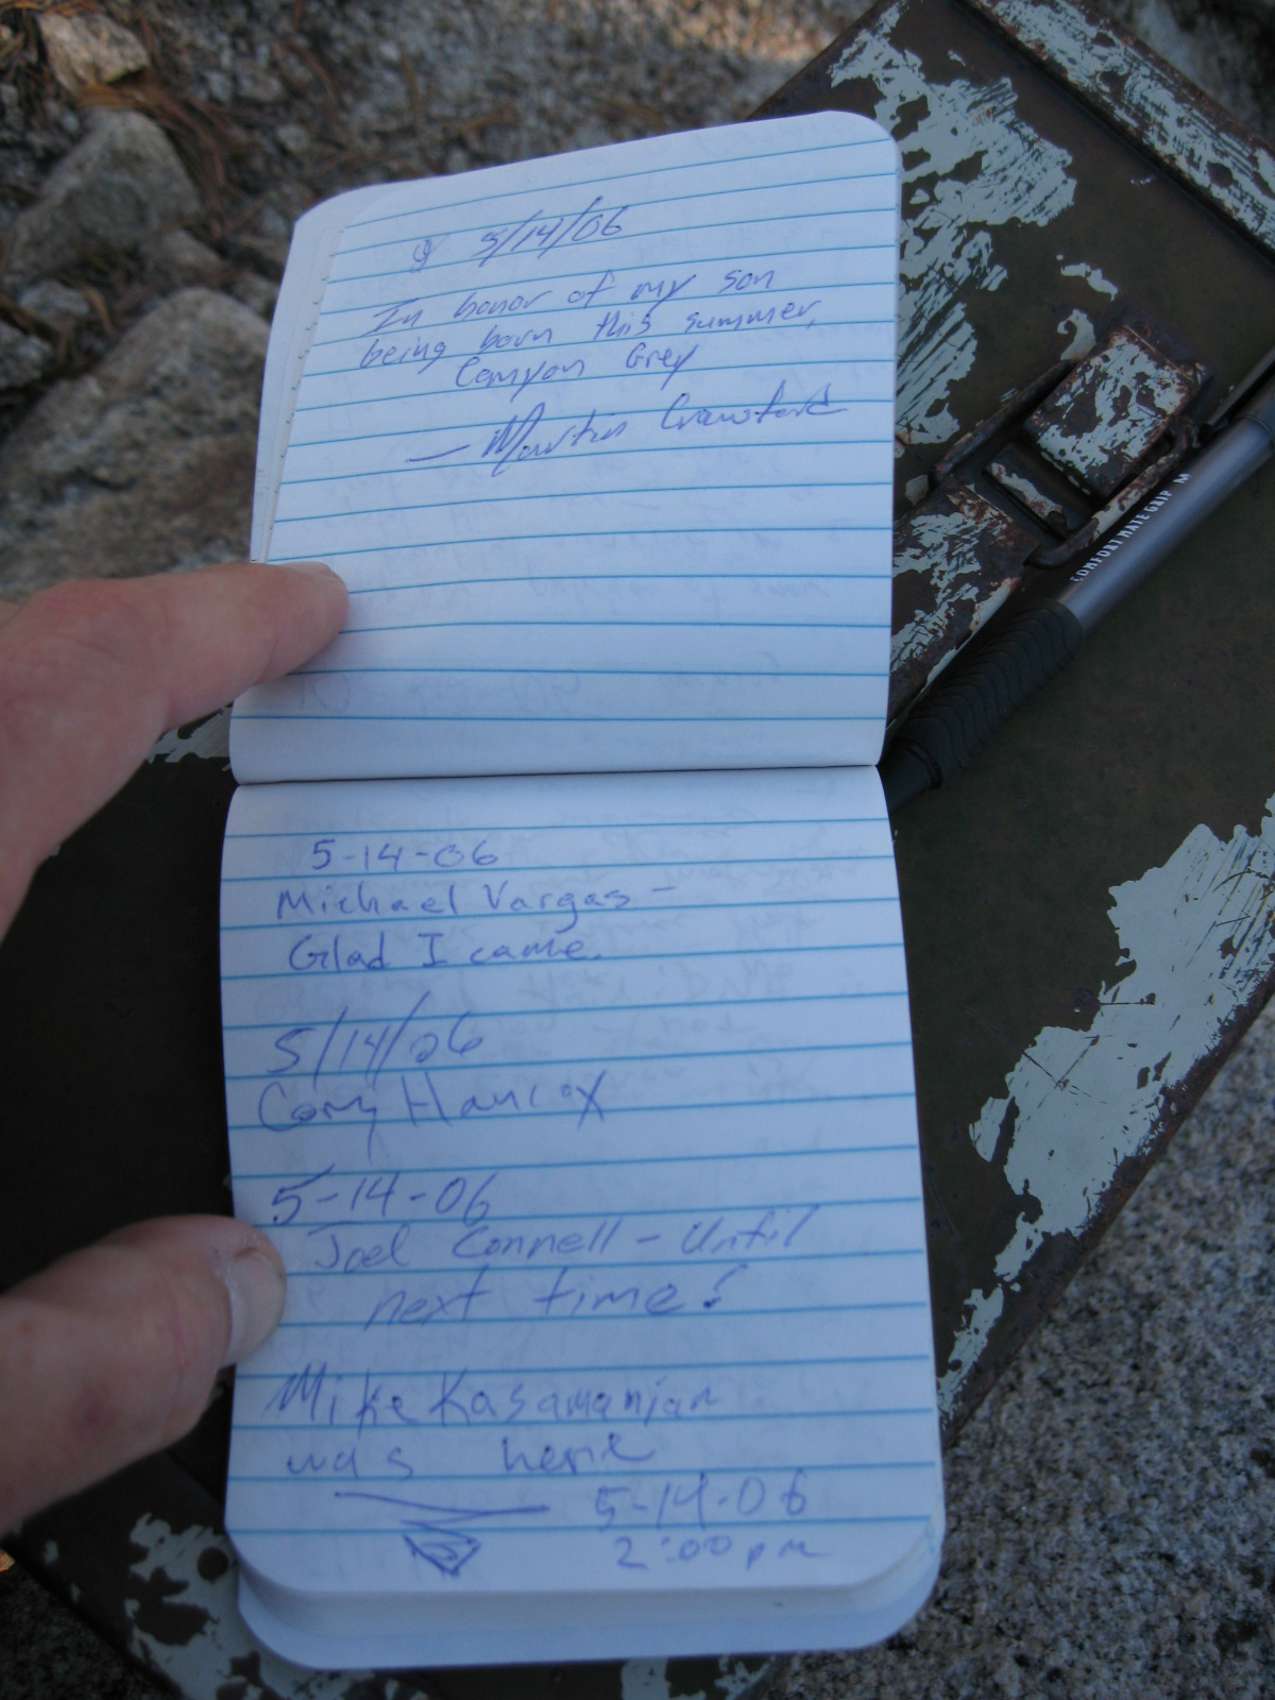 5/14/06
In honor of my son
being born this summer,
Canyon Grey
— Martin Crawford
5-14-06
Michael Vargas –
Glad I came.
5/14/06
Cory Hancox
5-14-06
Joel Connell – Until
next time!
Mike Kasamanian
was here
5-14-06
2:00pm
COMFORTMATE GRIP M